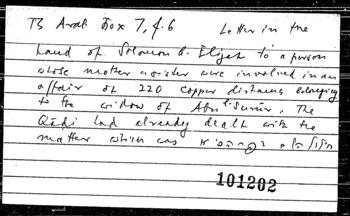 TS Arab Box 7, f. 6 Letter in the
hand of Solomon b. Elijah to a person
whose mother & sister were involved in an
affair of 220 copper dirhams belonging
to the widow of Abu'l-Surūr. The
Qāḍi had already dealt with the
matter which was
101202